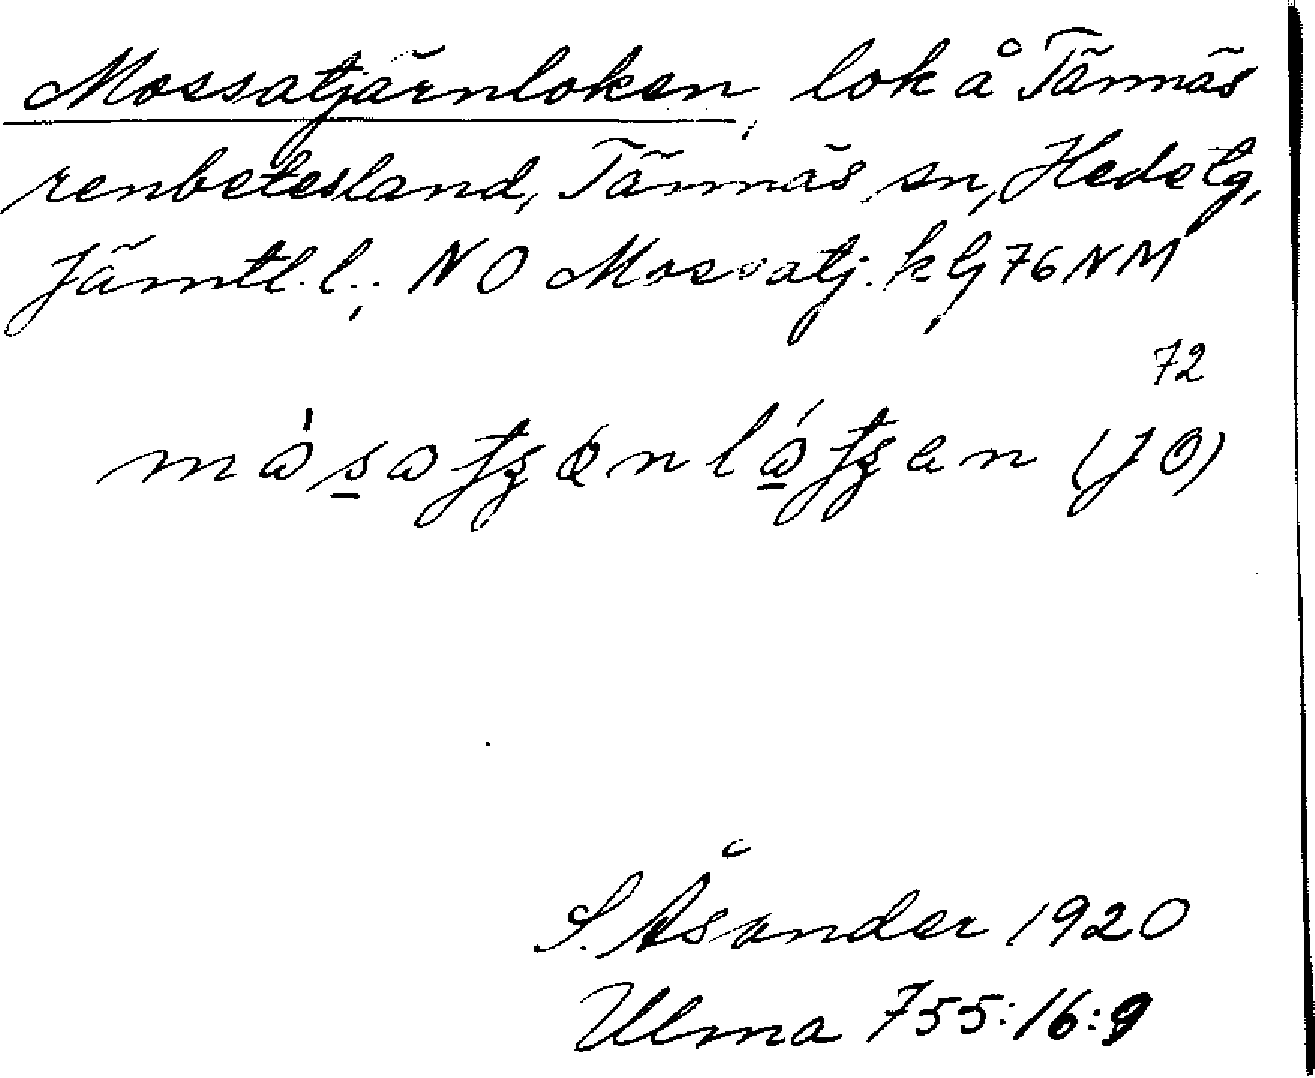 Mossatjärnloken, lok å Tännäs
renbetesland, Tännäs sn, Hede tg,
Jämtl. l.. NO Mossatj. k G 76 NM
72
(JO)
S. Åsander 1920
Ulma 755:16:9